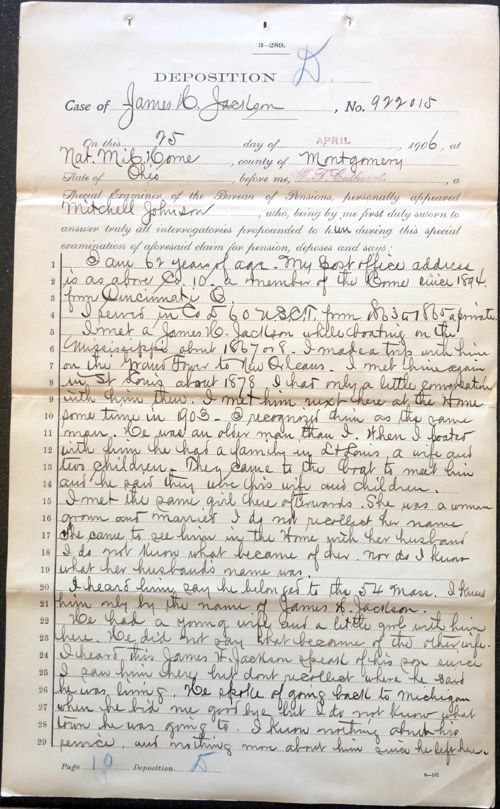 3—289.
DEPOSITION D.
Case of James H. Jackson, No. 922015
On this 25 day of APRIL, 1906, at
Nat. Mil. Home, county of Montgomery
State of Ohio, before me, a
Special Examiner of the Bureau of Pensions, personally appeared
Mitchell Johnson, who, being by me first duly sworn to
answer truly all interrogatories propounded to him during this special
examination of aforesaid claim for pension, deposes and says:
1 I am 62 years of age. My post office address
2 is as above Co. 10. a member of the Home since 1894.
3 from Cincinnati O.
4 I served in Co D 60 U.S.C.T. from 1863 to 1865 a private
5 I met a James H. Jackson while boating on the
6 Mississippi about 1867 or 8. I made a trip with him
7 on the Grand Tower to New Orleans. I met him again
8 in St Louis about 1878. I had only a little conversation
9 with him then. I met him next here at the Home
10 some time in 1903 - I recognized him as the same
11 man. He was an older man than I. When I boated
12 with him he had a family in St Louis, a wife and
13 two children. They came to the boat to meet him
14 and he said they were his wife and children.
15 I met the same girl here afterwards. She was a woman
16 grown and married I do not recollect her name
17 She came to see him in the Home with her husband
18 I do not know what became of her. nor do I know
19 what her husband's name was.
20 I heard him say he belonged to the 54 Mass. I knew
21 him only by the name of James H. Jackson.
22 He had a young wife and a little girl with him
23 here. He did not say what became of the other wife.
24 I heard this James H. Jackson speak of his son since
25 I saw him here but dont recollect where he said
26 he was living. He spoke of going back to Michigan
27 when he bid me goodbye but I do not know what
28 town he was going to. I know nothing about his
29 service, and nothing more about him since he left here.
Page 10 Deposition D